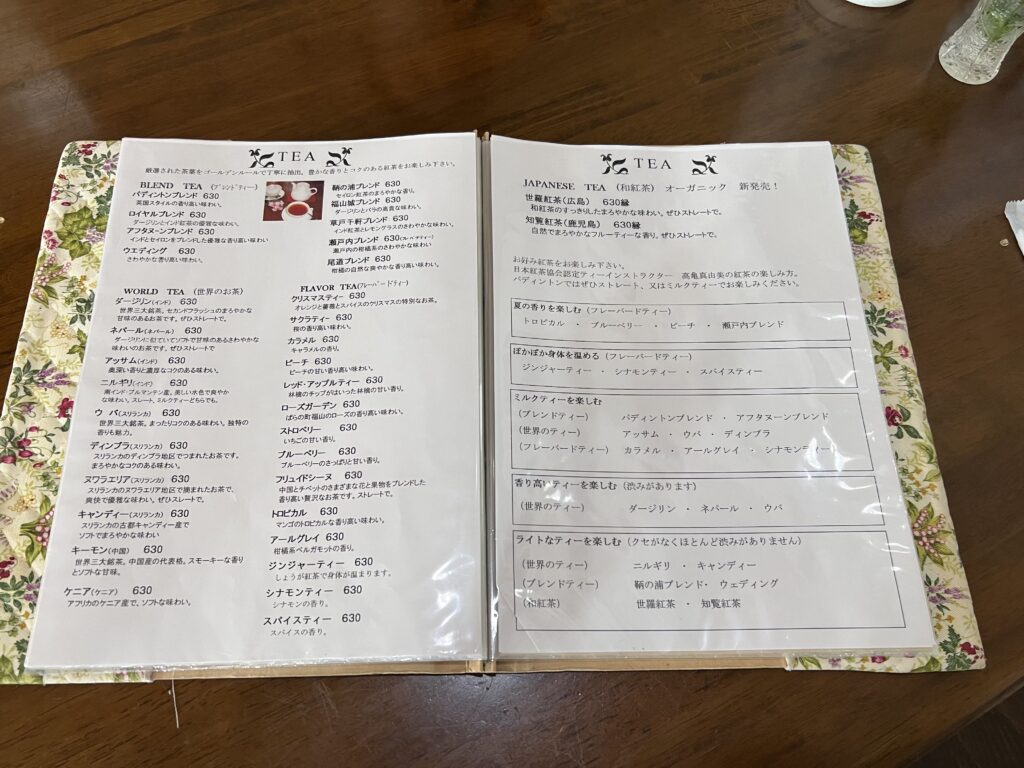 TEA
厳選された茶葉をゴールデンルールで丁寧に抽出。豊かな香りとコクのある紅茶をお楽しみ下さい。
BLEND TEA (ブレンドティー)
パディントンブレンド 630
英国スタイルの香り高い味わい。
ロイヤルブレンド 630
ダージリンとインド紅茶の優雅な味わい。
アフタヌーンブレンド 630
インドとセイロンをブレンドした優雅な香り高い味わい
ウエディング 630
さわやかな香り高い味わい。
鞆の浦ブレンド 630
セイロン紅茶のまろやかな香り。
福山城ブレンド 630
ダージリンとバラの高貴な味わい。
草戸千軒ブレンド 630
インド紅茶とレモングラスのさわやかな味わい。
瀬戸内ブレンド 630(フレーバードティー)
瀬戸内の柑橘系のさわやかな味わい
尾道ブレンド 630
柑橘の自然な爽やかな香り高い味わい。
WORLD TEA (世界のお茶)
ダージリン(インド) 630
世界三大銘茶。セカンドフラッシュのまろやかな
甘味のあるお茶です。ぜひストレートで。
ネパール(ネパール) 630
ダージリンに似ていてソフトで甘味のあるさわやかな
味わいのお茶です。ぜひストレートで
アッサム(インド) 630
奥深い香りと濃厚なコクのある味わい。
ニルギリ(インド) 630
南インド・ブルマンテン産。美しい水色で爽やか
な味わい。スレート、ミルクティーどちらでも。
ウ バ(スリランカ) 630
世界三大銘茶。まったりコクのある味わい。独特の
香りも魅力。
ディンブラ(スリランカ) 630
スリランカのディンブラ地区でつまれたお茶です。
まろやかなコクのある味わい。
ヌワラエリア(スリランカ) 630
スリランカのヌワラエリア地区で摘まれたお茶で、
爽快で優雅な味わい。ぜひストレートで。
キャンディー(スリランカ) 630
スリランカの古都キャンディー産で
ソフトでまろやかな味わい
キーモン(中国) 630
世界三大銘茶。中国産の代表格。スモーキーな香り
とソフトな甘味。
ケニア(ケニア) 630
アフリカのケニア産で、ソフトな味わい。
FLAVOR TEA(フレーバードティー)
クリスマスティー 630
オレンジと薔薇とスパイスのクリスマスの特別なお茶。
サクラティー 630
桜の香り高い味わい。
カラメル 630
キャラメルの香り。
ピーチ 630
ピーチの甘い香り高い味わい。
レッド・アップルティー 630
林檎のチップがはいった林檎の甘い香り。
ローズガーデン 630
ばらの町福山のローズの香り高い味わい。
ストロベリー 630
いちごの甘い香り。
ブルーベリー 630
ブルーベリーのさっぱりと甘い香り。
フリュイドシーヌ 630
中国とチベットのさまざまな花と果物をブレンドした
香り高い贅沢なお茶です。ストレートで。
トロピカル 630
マンゴのトロピカルな香り高い味わい。
アールグレイ 630
柑橘系ベルガモットの香り。
ジンジャーティー 630
しょうが紅茶で身体が温まります。
シナモンティー 630
シナモンの香り。
スパイスティー 630
スパイスの香り。
TEA
JAPANESE TEA (和紅茶) オーガニック 新発売!
世羅紅茶(広島) 630縁
和紅茶のすっきりしたまろやかな味わい。ぜひストレートで。
知覧紅茶(鹿児島) 630縁
自然でまろやかなフルーティーな香り。ぜひストレートで。
お好み紅茶をお楽しみ下さい。
日本紅茶協会認定ティーインストラクター 高亀真由美の紅茶の楽しみ方。
パディントンではぜひストレート、又はミルクティーでお楽しみください。
夏の香りを楽しむ(フレーバードティー)
トロピカル ・ ブルーベリー ・ ピーチ ・ 瀬戸内ブレンド
ぽかぽか身体を温める(フレーバードティー)
ジンジャーティー ・ シナモンティー ・ スパイスティー
ミルクティーを楽しむ
(ブレンドティー) パディントンブレンド ・ アフタヌーンブレンド
(世界のティー) アッサム ・ ウバ ・ ディンブラ
(フレーバードティー) カラメル ・ アールグレイ ・ シナモンティー
香り高いティーを楽しむ(渋みがあります)
(世界のティー) ダージリン ・ ネパール ・ ウバ
ライトなティーを楽しむ(クセがなくほとんど渋みがありません)
(世界のティー) ニルギリ ・ キャンディー
(ブレンドティー) 鞆の浦ブレンド・ ウェディング
(和紅茶) 世羅紅茶 ・ 知覧紅茶